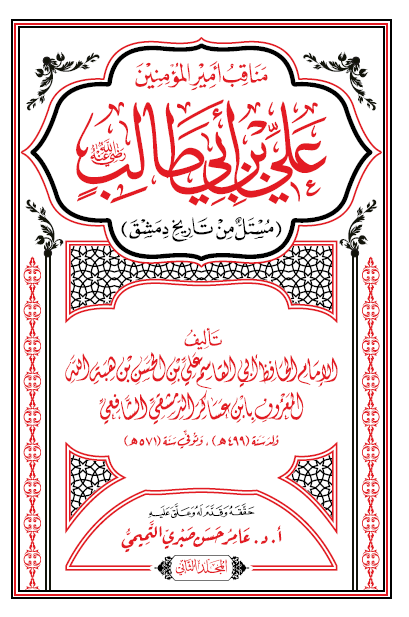 مَنَاقِبُ أَمِيرِ المُؤْمِنِينَ
عَلِيِّ بْنِ أَبِي طَالِبٍ رَضِيَ اللَّهُ عَنْهُ
(مُسْتَلٌّ مِنْ تَارِيخِ دِمَشْقَ)
تَأليفُ
الإمام الحافظ أبي القاسم علي بن الحسن بن هبة الله
المعروف بابن عساكر الدمشقي الشافعي
ولد سنة (٤٩٩هـ)، وتوفي سنة (٥٧١هـ)
حَقَّقَهُ وَقَدَّمَ لَهُ وَعَلَّقَ عَلَيْهِ
أ. د. عَامِرُ حَسَن صَبْرِي التَّمِيمِيُّ
المُجَلَّدُ الثَّانِي